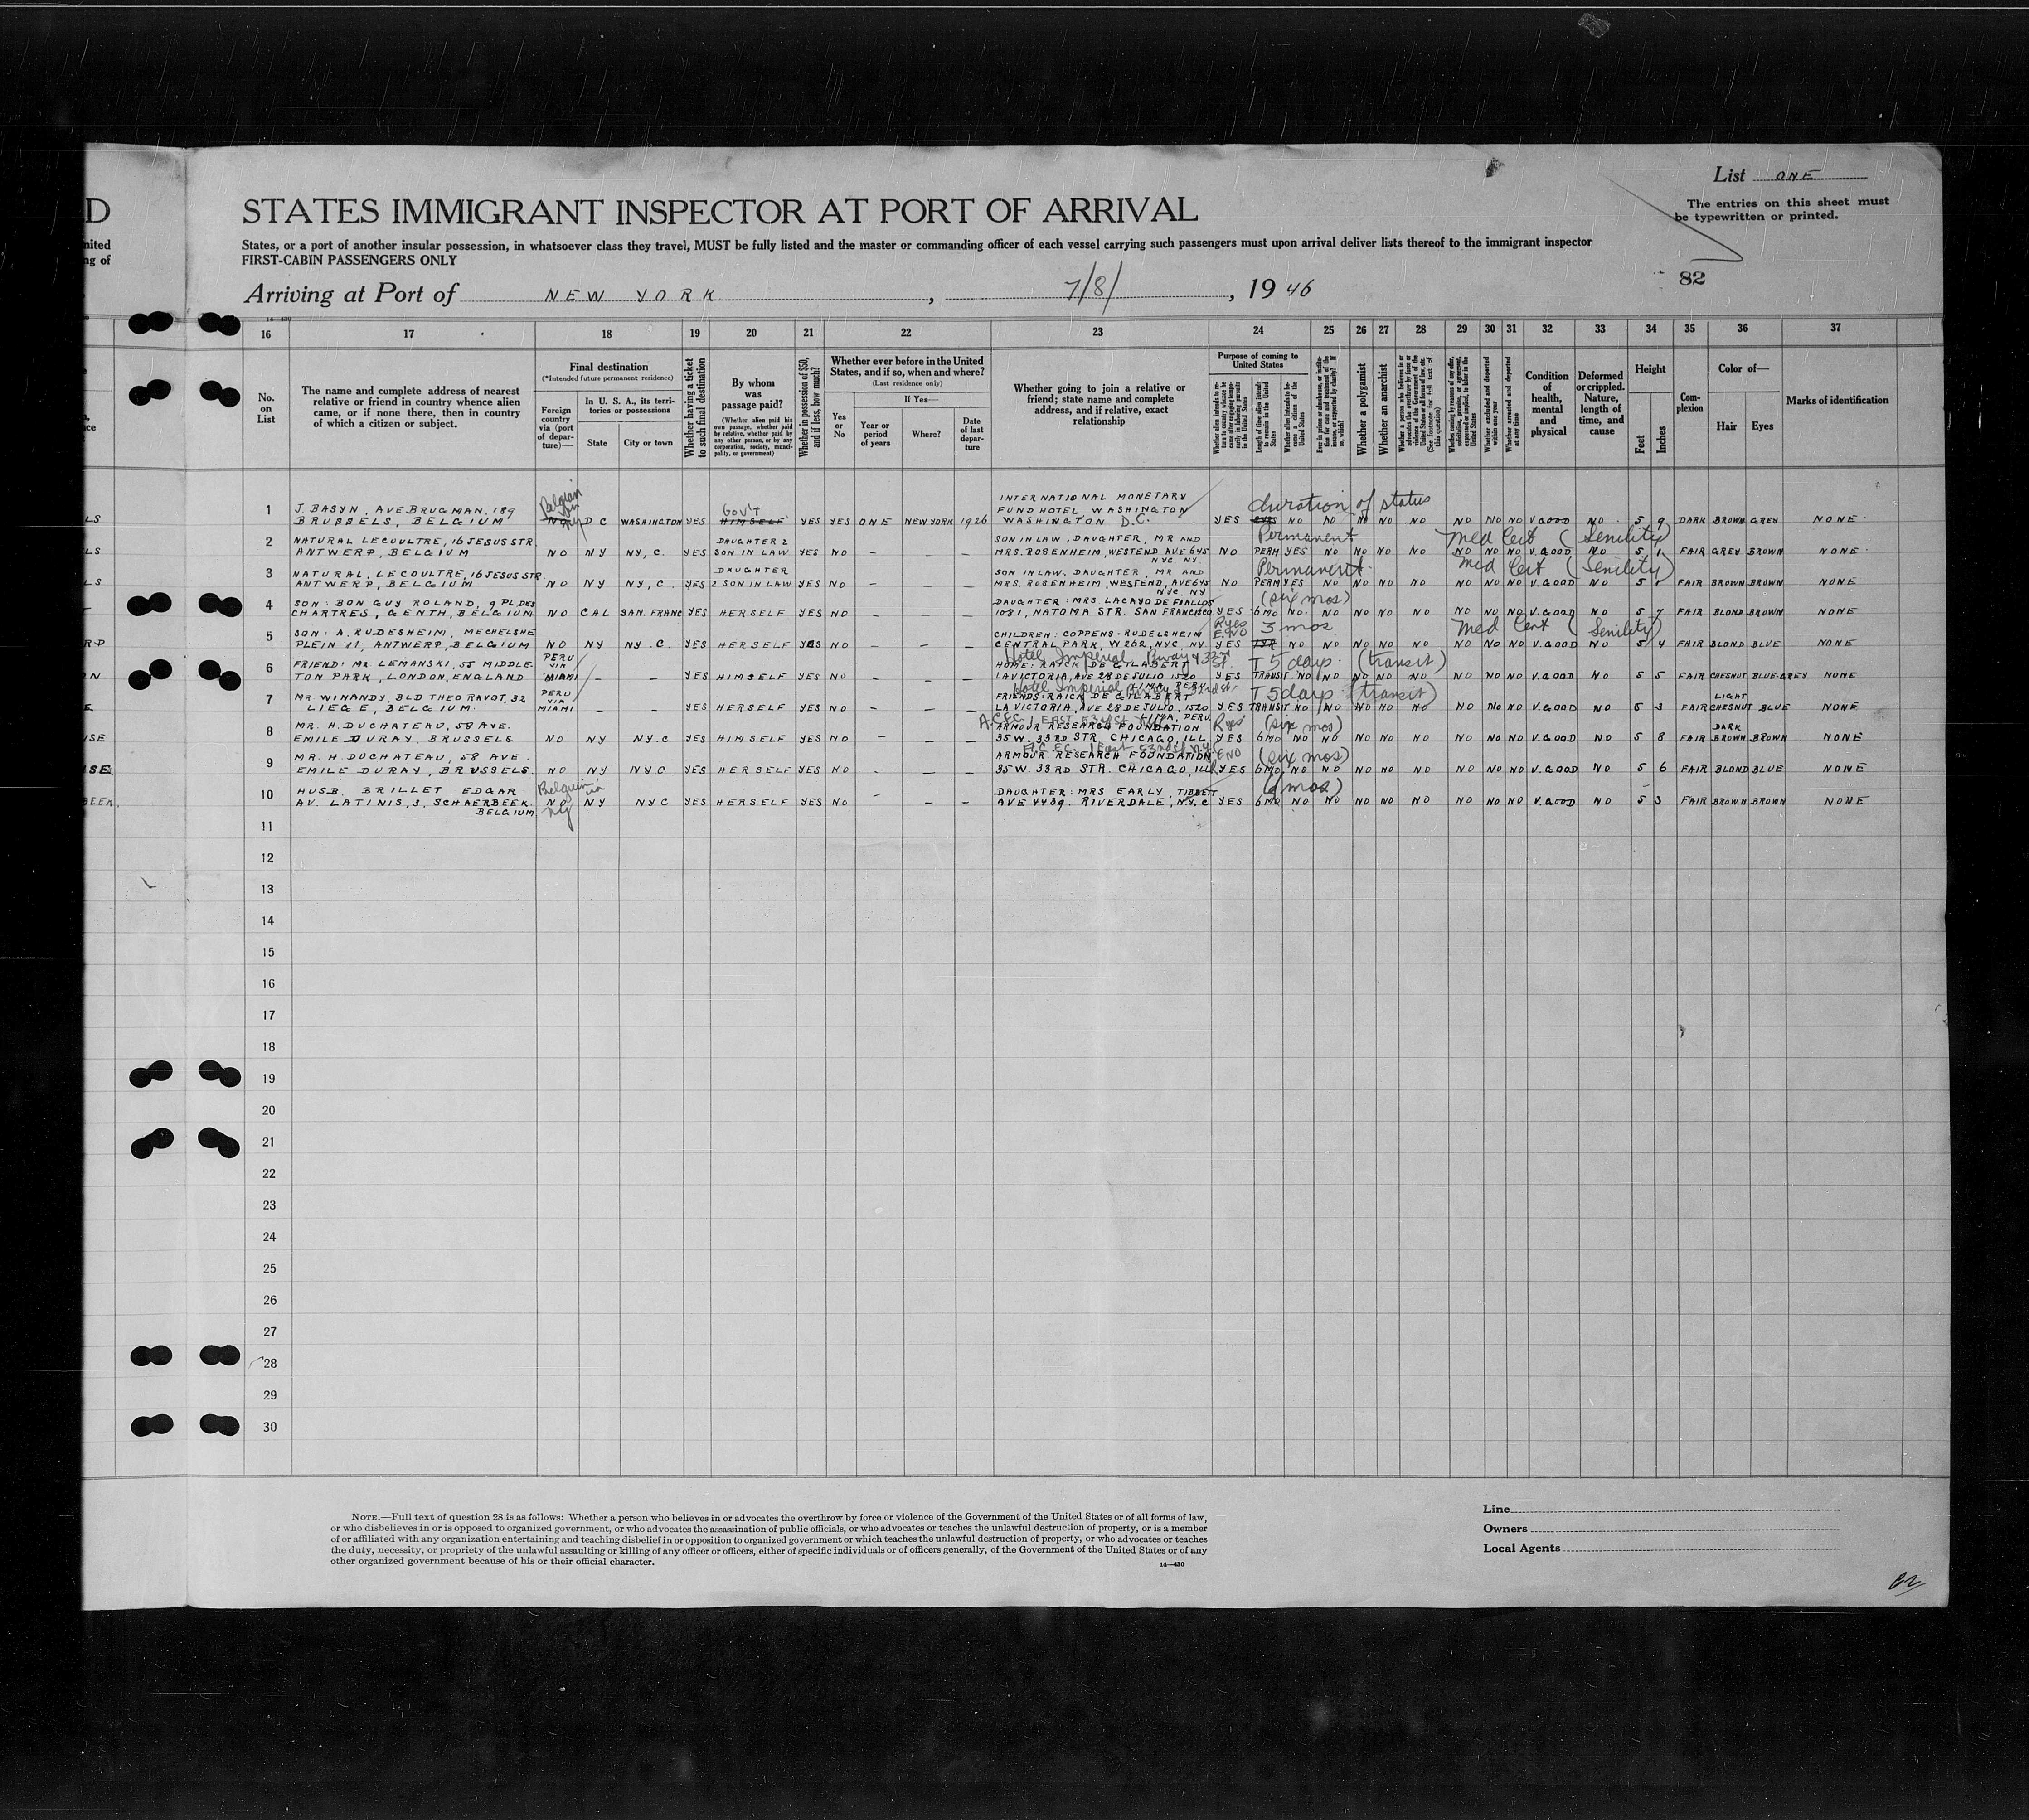 List ONE
D STATES IMMIGRANT INSPECTOR AT PORT OF ARRIVAL
The entries on this sheet must
be typewritten or printed.
States, or a port of another insular possession, in whatsoever class they travel, MUST be fully listed and the master or commanding officer of each vessel carrying such passengers must upon arrival deliver lists thereof to the immigrant inspector
FIRST-CABIN PASSENGERS ONLY
82
Arriving at Port of NEW YORK, 7/8/, 1946
16 17 18 19 20 21 22 23 24 25 26 27 28 29 30 31 32 33 34 35 36 37
No. on List
The name and complete address of nearest
relative or friend in country whence alien
came, or if none there, then in country
of which a citizen or subject.
Final destination
(*Intended future permanent residence)
Foreign country via (port of departure)—
In U. S. A., its territories or possessions
State City or town
Whether having a ticket to such final destination
By whom was passage paid?
(Whether alien paid his own passage, whether paid by relative, whether paid by any other person, or by any corporation, society, municipality, or government)
Whether in possession of $50, and if less, how much?
Whether ever before in the United States, and if so, when and where?
(Last residence only)
Yes or No
If Yes—
Year or period of years
Where?
Date of last departure
Whether going to join a relative or
friend; state name and complete
address, and if relative, exact
relationship
Purpose of coming to United States
Whether a polygamist
Whether an anarchist
Condition of health, mental and physical
Deformed or crippled. Nature, length of time, and cause
Height
Feet Inches
Complexion
Color of—
Hair Eyes
Marks of identification
1 J. BASYN, AVE BRUGMAN. 189
BRUSSELS, BELGIUM Belgian via NY NO D C WASHINGTON YES Gov't HIMSELF YES YES ONE NEW YORK 1926
INTERNATIONAL MONETARY
FUND HOTEL WASHINGTON
WASHINGTON D.C. YES duration of status NO NO NO NO NO NO NO NO V.GOOD NO 5 9 DARK BROWN GREY NONE
2 NATURAL LECOULTRE, 16 JESUS STR.
ANTWERP, BELGIUM NO NY NY, C. YES DAUGHTER & SON IN LAW YES NO — —
SON IN LAW, DAUGHTER, MR AND
MRS. ROSENHEIM, WESTEND AVE 645
NYC. NY. NO Permanent PERM YES NO NO NO NO Med Cert (Senility) NO NO NO V.GOOD NO 5 1 FAIR GREY BROWN NONE
3 NATURAL. LECOULTRE, 16 JESUS STR.
ANTWERP, BELGIUM NO NY NY, C. YES DAUGHTER & SON IN LAW YES NO — —
SON IN LAW, DAUGHTER, MR AND
MRS. ROSENHEIM, WESTEND, AVE 645
NYC. NY NO Permanent PERM YES NO NO NO NO Med Cert (Senility) NO NO NO V.GOOD NO 5 FAIR BROWN BROWN NONE
4 SON: BON GUY ROLAND, 9 PL DES
CHARTRES, GENTH, BELGIUM NO CAL SAN. FRANC YES HERSELF YES NO
DAUGHTER: MRS. LACAYO DE FIALLOS
1081, NATOMA STR. SAN FRANCISCO YES (six mos) 6MO NO NO NO NO NO NO NO NO V.GOOD NO 5 7 FAIR BLOND BROWN NONE
5 SON: A. RUDESHEIM, MECHELSHE
PLEIN 11, ANTWERP, BELGIUM NO NY NY.C. YES HERSELF YES NO — —
CHILDREN: COPPENS-RUDELSHEIM
CENTRAL PARK, W262, NYC. NY R yes E. NO YES 3 mos NO NO NO NO NO Med Cert (Senility) NO NO NO V.GOOD NO 5 4 FAIR BLOND BLUE NONE
6 FRIEND: MR LEMANSKI, 55 MIDDLE-
TON PARK, LONDON, ENGLAND PERU VIA MIAMI — — YES HIMSELF YES NO — —
Hotel Imperial Bway & 32nd St.
HOME: RAICK DE GILABERT
LA VICTORIA, AVE 28 DE JULIO 1520 YES T 5 days (transit) TRANSIT NO NO NO NO NO NO NO NO V.GOOD NO 5 5 FAIR CHESNUT BLUE-GREY NONE
7 MR WINANDY, BLD THEO RAVOT, 32
LIEGE, BELGIUM. PERU VIA MIAMI — — YES HERSELF YES NO — —
LIMA, PERU
FRIENDS: RAICK DE GILABERT
LA VICTORIA, AVE 28 DE JULIO, 1520 YES T 5 days (transit) TRANSIT NO NO NO NO NO NO NO NO V.GOOD NO 5 3 FAIR LIGHT CHESTNUT BLUE NONE
LIMA, PERU
8 MR. H. DUCHATEAU, 58 AVE.
EMILE DURAY, BRUSSELS NO NY NY.C YES HIMSELF YES NO — — —
ARMOUR RESEARCH FOUNDATION
35 W. 33RD STR. CHICAGO, ILL. R yes YES (six mos) 6MO NO NO NO NO NO NO NO NO V.GOOD NO 5 8 FAIR DARK BROWN BROWN NONE
9 MR. H. DUCHATEAU, 58 AVE.
EMILE DURAY, BRUSSELS. NO NY NY.C YES HERSELF YES NO — — —
ARMOUR RESEARCH FOUNDATION
35 W. 33RD STR. CHICAGO, ILL E NO YES (six mos) 6MO NO NO NO NO NO NO NO NO V.GOOD NO 5 6 FAIR BLOND BLUE NONE
10 HUSB. BRILLET EDGAR
AV. LATINIS, 3, SCHAERBEEK.
BELGIUM Belgium via NY NO NY NYC YES HERSELF YES NO — — —
DAUGHTER: MRS EARLY, TIBBETT
AVE 4439. RIVERDALE, N.Y.C YES 6MO NO NO NO NO NO NO NO NO V.GOOD NO 5 3 FAIR BROWN BROWN NONE
11
12
13
14
15
16
17
18
19
20
21
22
23
24
25
26
27
28
29
30
NOTE.—Full text of question 28 is as follows: Whether a person who believes in or advocates the overthrow by force or violence of the Government of the United States or of all forms of law,
or who disbelieves in or is opposed to organized government, or who advocates the assassination of public officials, or who advocates or teaches the unlawful destruction of property, or is a member
of or affiliated with any organization entertaining and teaching disbelief in or opposition to organized government or which teaches the unlawful destruction of property, or who advocates or teaches
the duty, necessity, or propriety of the unlawful assaulting or killing of any officer or officers, either of specific individuals or of officers generally, of the Government of the United States or of any
other organized government because of his or their official character.
14—430
Line
Owners
Local Agents
82